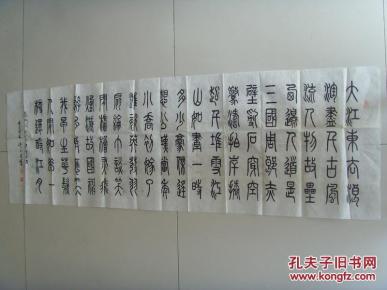 大江東去浪
淘盡千古風
流人物故壘
西邊人道是
三國周郎赤
壁亂石穿空
驚濤拍岸捲
起千堆雪江
山如畫一時
多少豪傑遙
想公瑾當年
小喬初嫁了
雄姿英發羽
扇綸巾談笑
間檣櫓灰飛
煙滅故國神
遊多情應笑
我早生華髮
人間如夢一
樽還酹江月
孔夫子旧书网